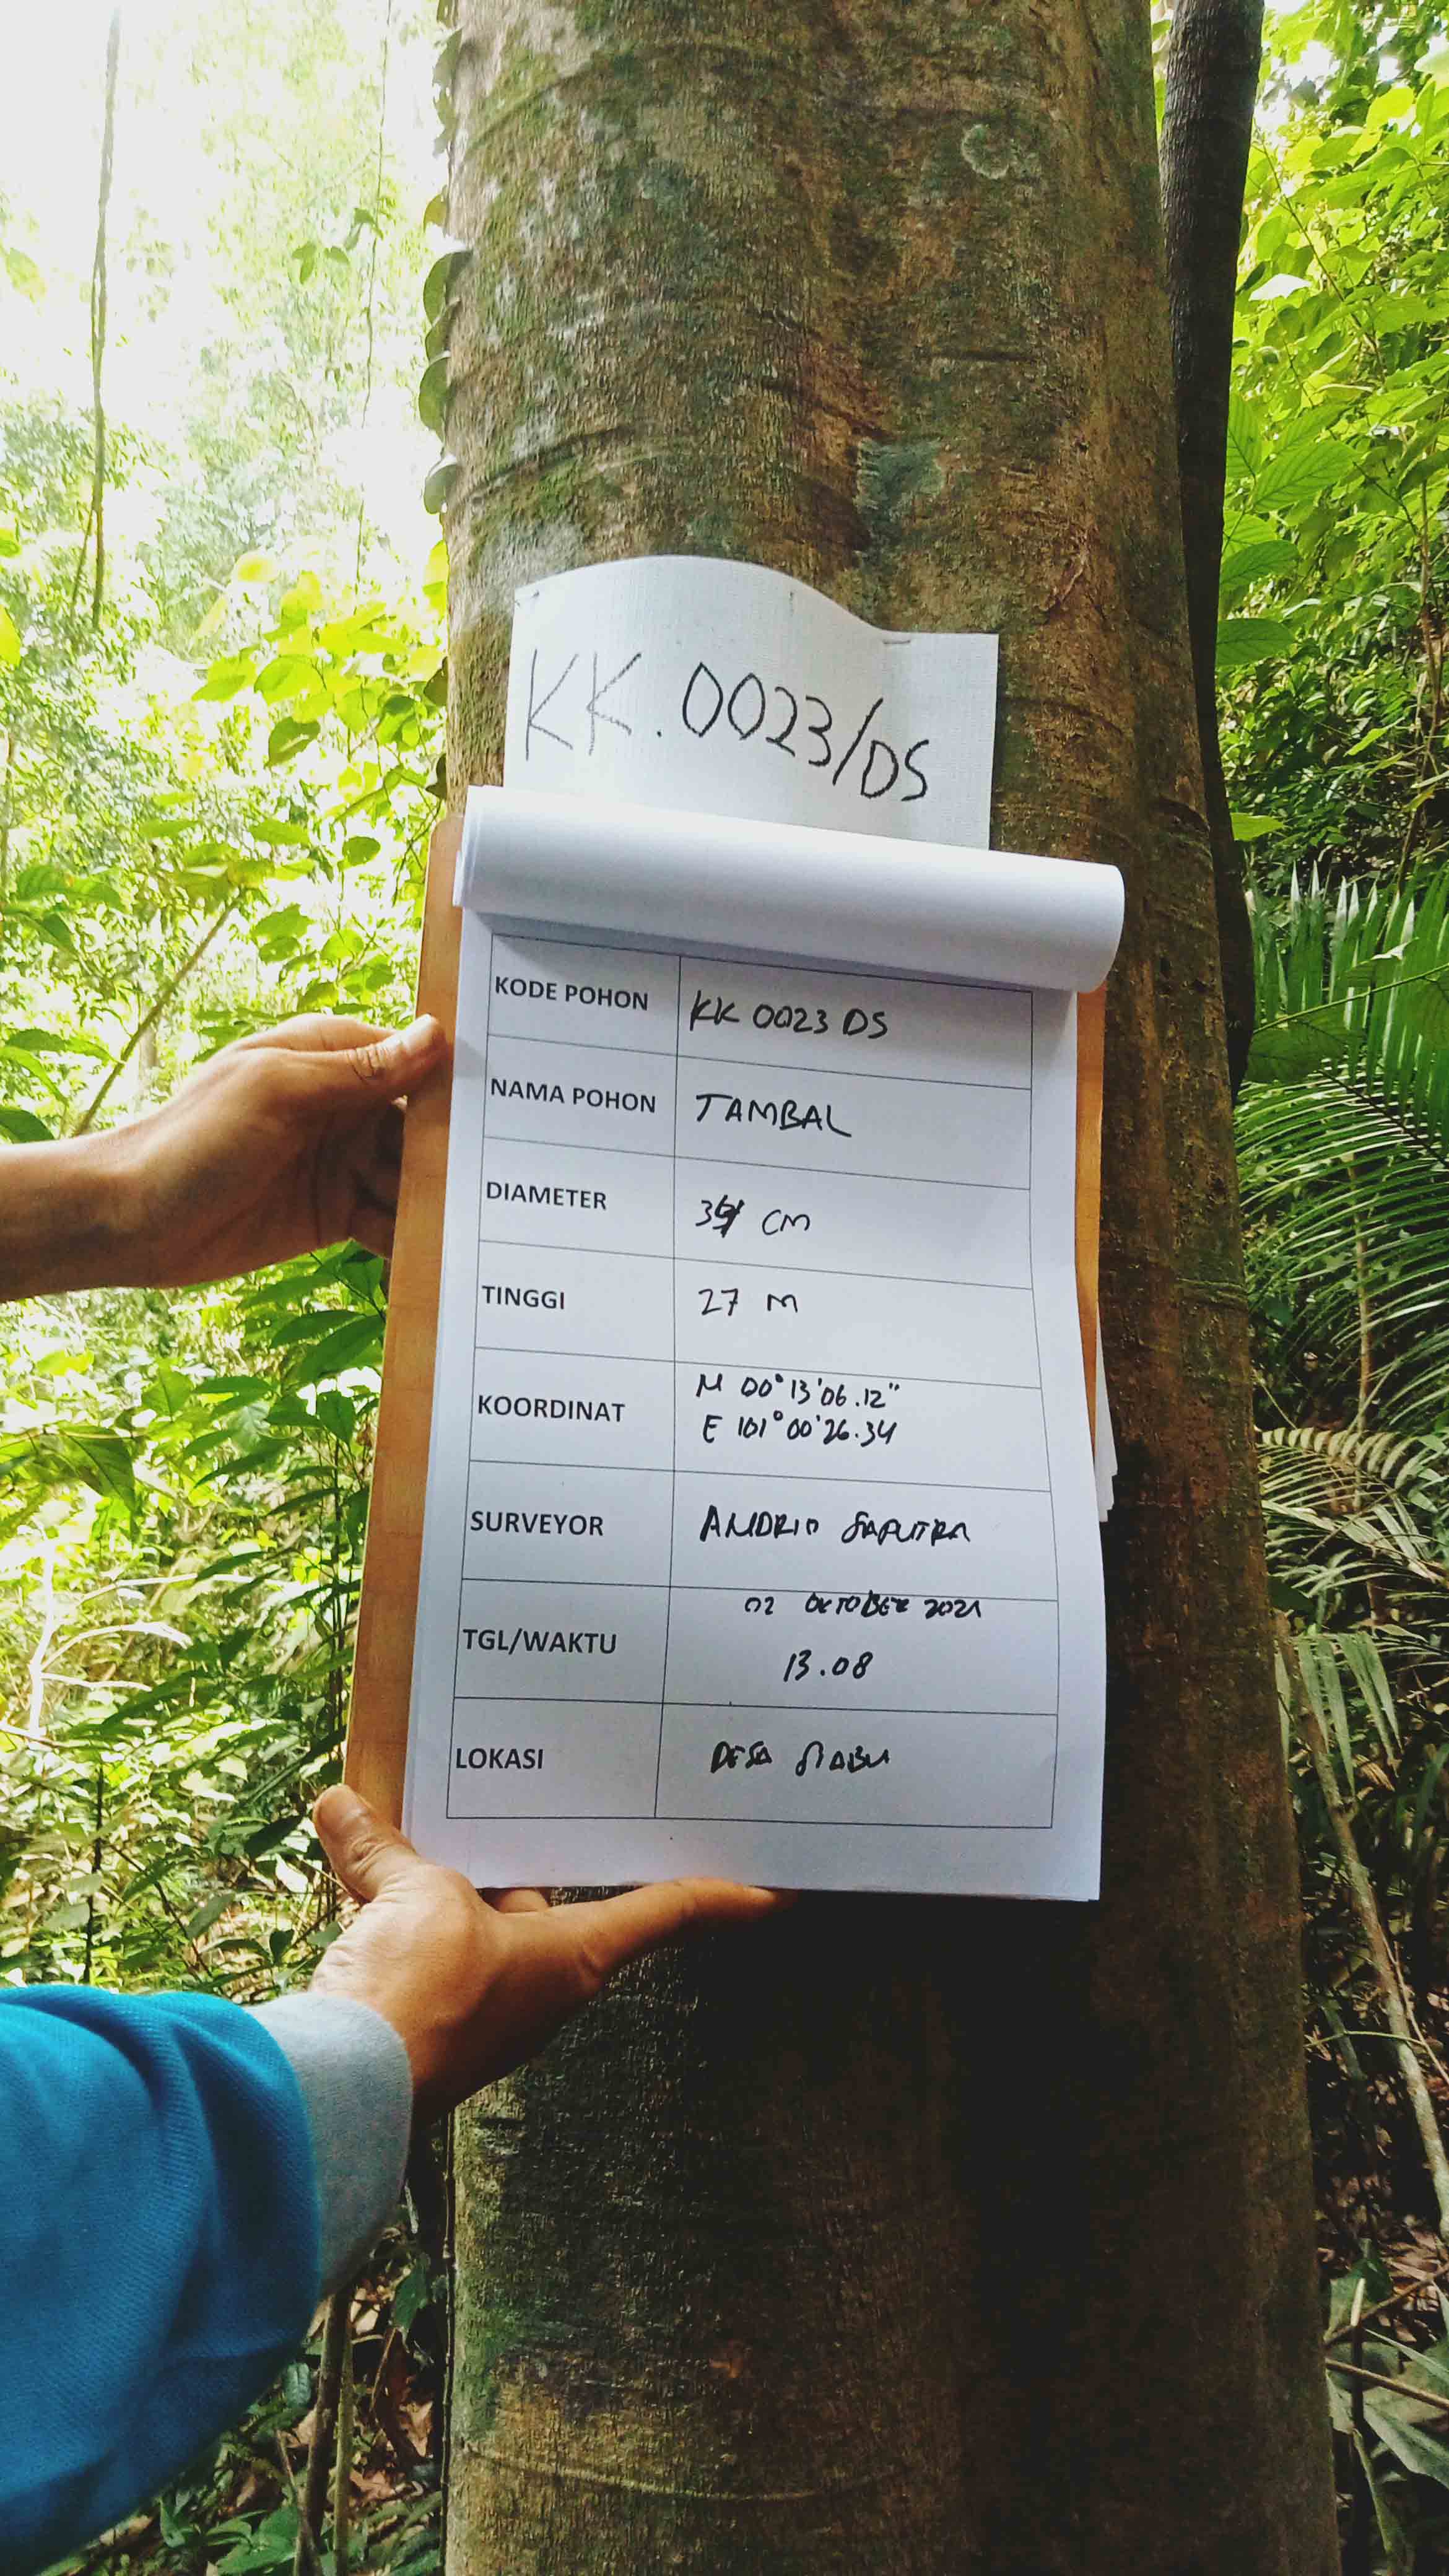 KK.0023/DS
KODE POHON KK 0023 DS
NAMA POHON TAMBAL
DIAMETER CM
TINGGI 27 M
KOORDINAT N 00°13'06.12"
E 101°00'26.34
SURVEYOR ANDRIO SAPUTRA
TGL/WAKTU 02 OKTOBER 2021
13.08
LOKASI DESA SIABU